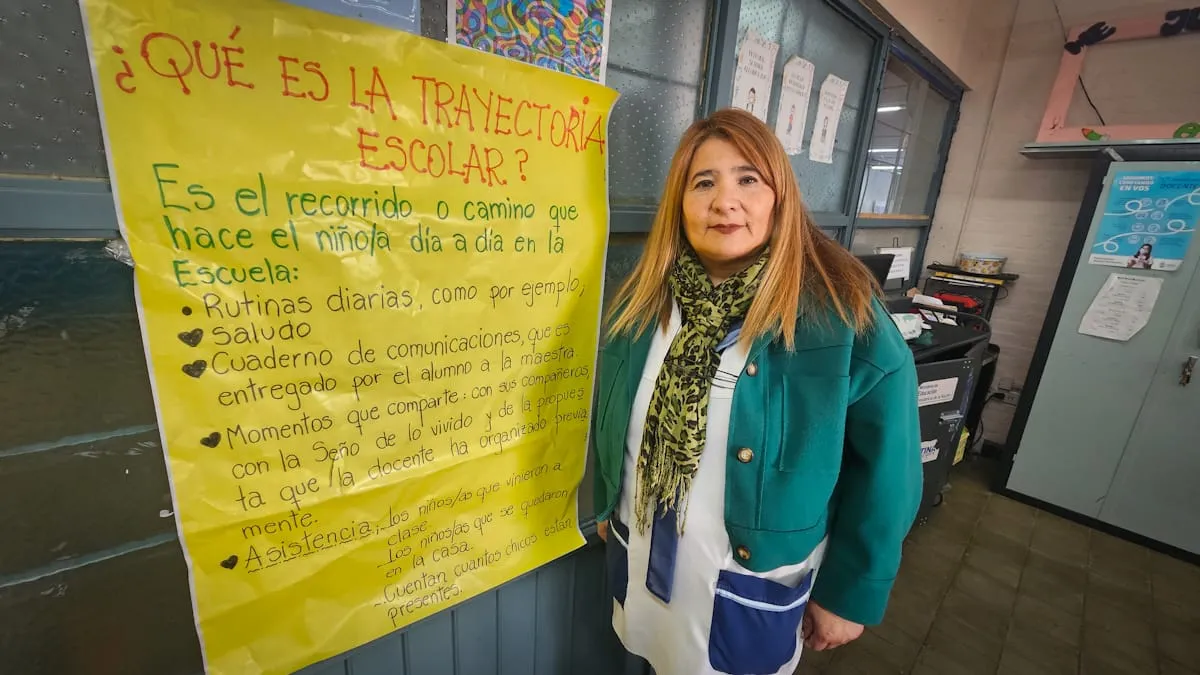 ¿QUÉ ES LA TRAYECTORIA
ESCOLAR?
Es el recorrido o camino que
hace el niño/a día a día en la
Escuela:
• Rutinas diarias, como por ejemplo,
♥ Saludo
♥ Cuaderno de comunicaciones, que es
entregado por el alumno a la maestra.
♥ Momentos que comparte: con sus compañeros,
con la Seño de lo vivido y de la propues
ta que la docente ha organizado previa
mente.
♥ Asistencia; los niños/as que vinieron a
clase.
- Los niños/as que se quedaron
en la casa.
- Cuentan cuantos chicos están
presentes.
EN VOS
Educación